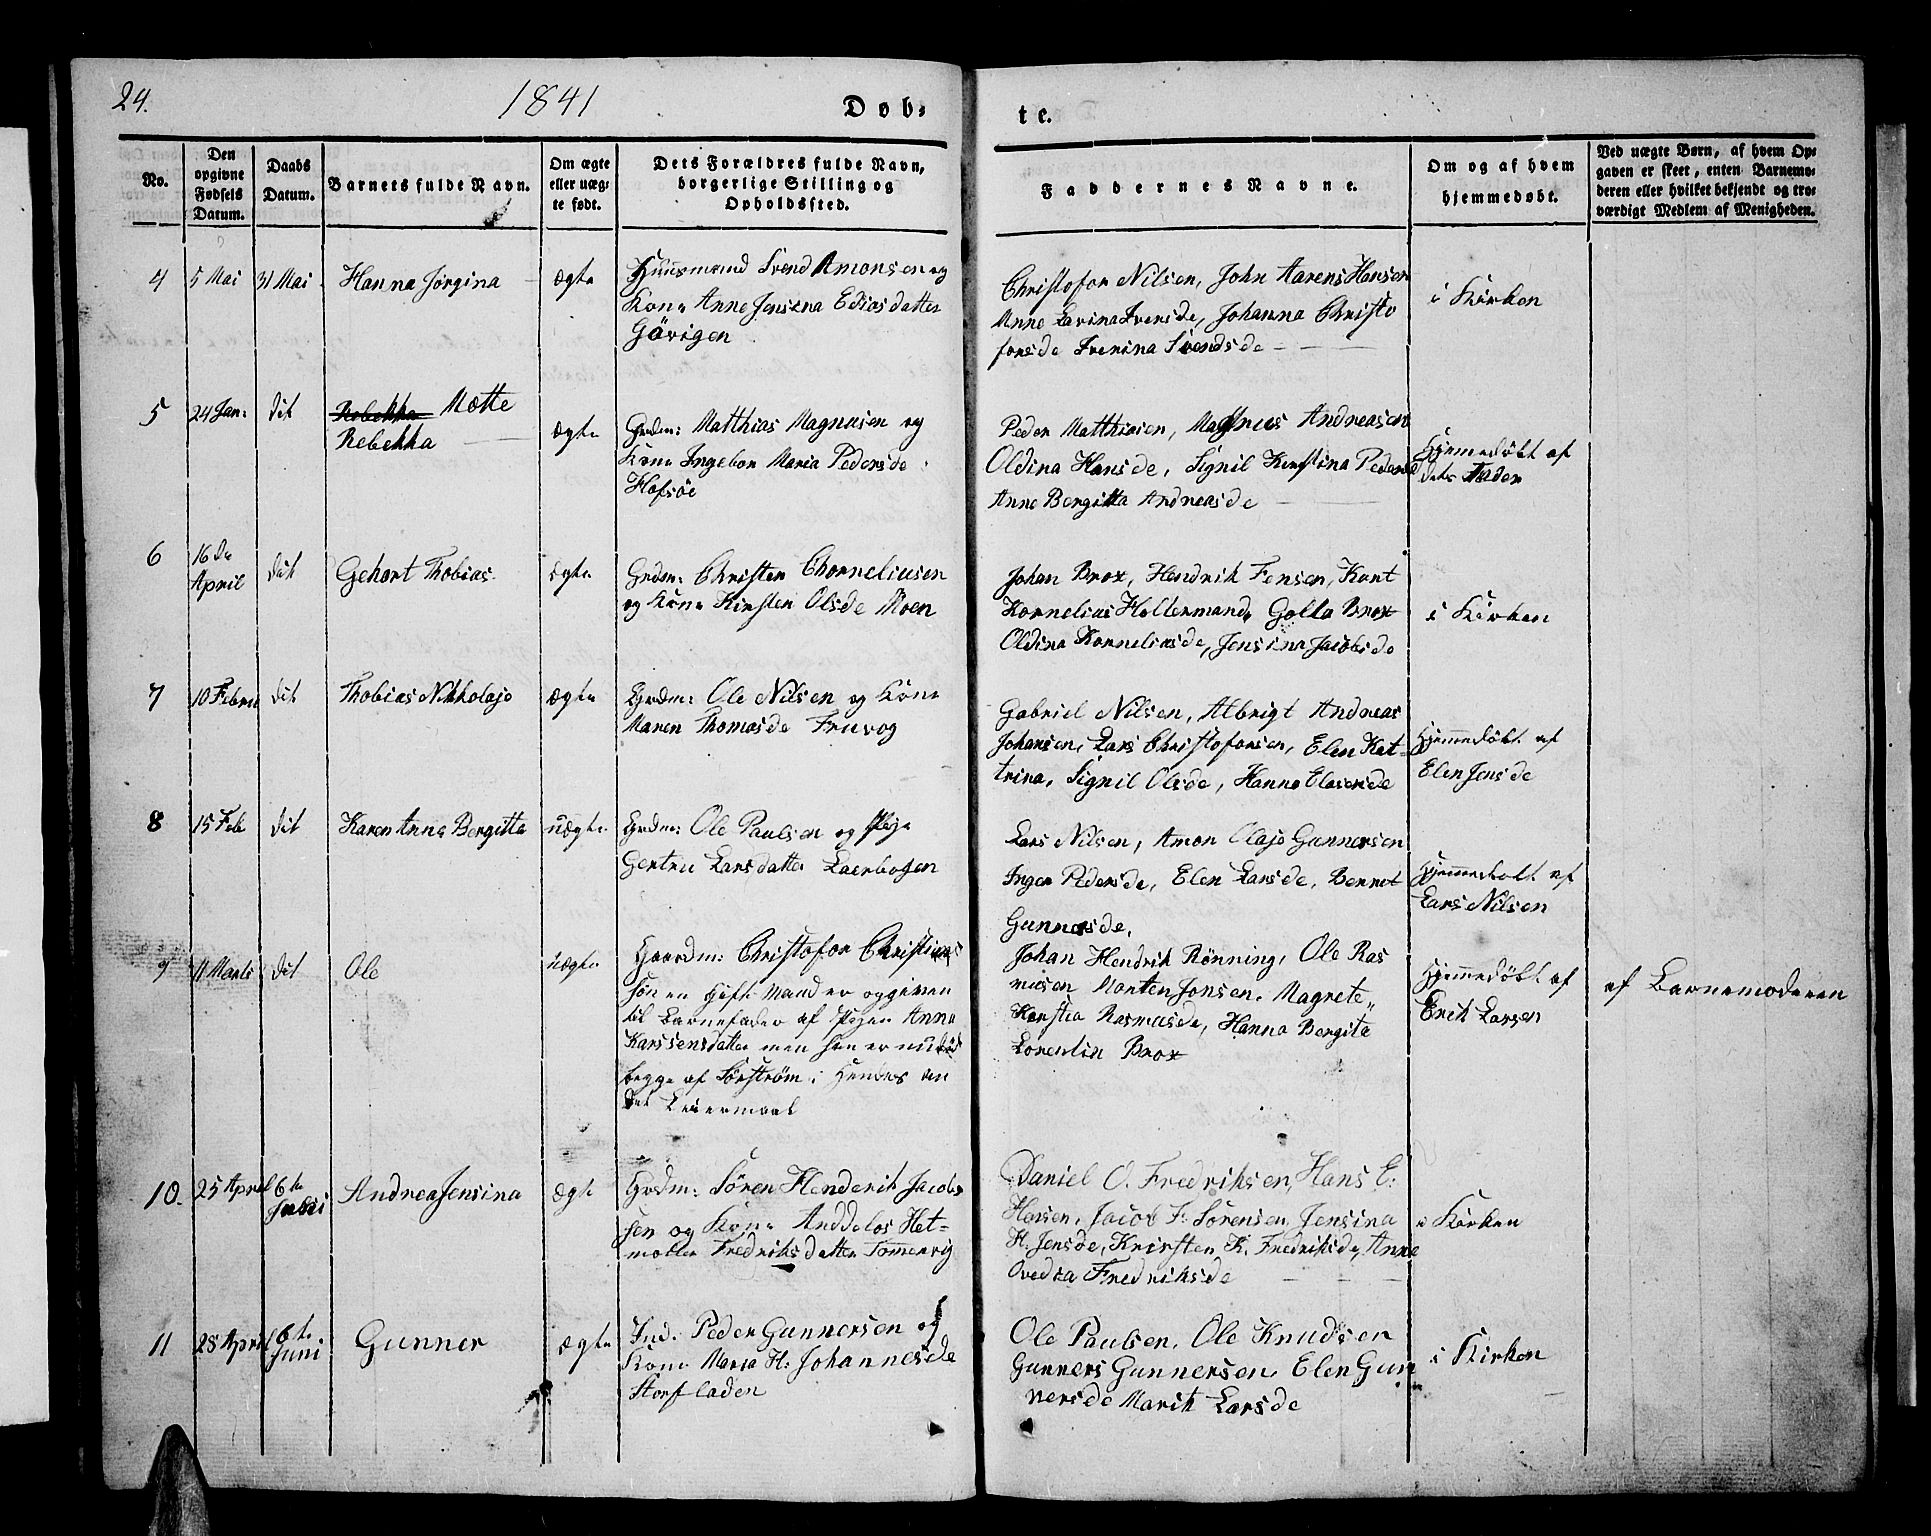 24.
1841
Døb-
te.
No.
Den opgivne Fødsels Datum.
Daabs Datum.
Barnets fulde Navn.
Om ægte eller uægte født.
Dets Forældres fulde Navn, borgerlige Stilling og Opholdssted.
Faddernes Navne.
Om og af hvem hjemmedøbt.
Ved uægte Børn, af hvem Opgaven er skeet, enten Barnemoderen eller hvilket bekjendt og troværdigt Medlem af Menigheden.
4
5 Mai
31 Mai
Hanna Jørgina
ægte
Huusmand Svend Amonsen og
Kone Anne Jensina Ediasdatter
Gövigen
Christofor Nilsen, John Aarens Hansen
Anne Lavina Iversde, Johanna Christo
forsde Iverina Svendsde
i Kirken
5
24 Jan:
dit
Mætte
Rebekka
ægte
Grdm: Matthias Magnusen og
Kone Ingebor Maria Pedersde
Hofsöe
Peder Matthiasen, Magnus Andreasen
Oldina Hansde, Signil Kirstina Pedersd
Anne Bergitta Andreasde
Hjemedöbt af
dets Fader
6
16de
April
dit
Gehart Thobias
ægte
Grdm: Christen Chorneliusen
og Kone Kirsten Olsde Moen
Johan Brox, Hendrik Jensen, Kont
Kornelias Holtermand, Golla Brox
Oldina Korneliasde, Jensina Jacobsde
i Kirken
7
10 Febru
dit
Thobias Nikkolajo
ægte
Grdm: Ole Nilsen og Kone
Maren Thomasde Fruvog
Gabriel Nilsen, Albrigt Andreas
Johansen, Lars Christoforsen, Elen Kat-
trina, Signil Olsde, Hanna Elasersde
Hjemmedöbt af
Elen Jensde
8
15 Feb
dit
Karen Anne Bergitta
uægte
Grdm: Ole Paulsen og Pige
Gertru Larsdatter Laerbogen
Lars Nilsen, Amon Olajo Gunnersen
Inger Pedersde, Elen Larsde, Bennet
Gunnersde,
Hjemmedobt af
Lars Nilsen
9
11 Marts
dit
Ole
uægte
Gaardm: Christofor Christians
sön en gift Mand er opgiven
til Barnefader af Pigen Anna
Karssensdatter men han er nu död
begge af Sörström i Hendes an
det Leiermaal
Johan Hendrik Rönning, Ole Ras
musen Morten Jonsen. Magrete
Kerstia Rasmusde, Hanna Bergite
Lorentin Brox
Hjemmedöbt af
Erik Larsen
af Barnemoderen
10.
25 April
6te
Juni
Andrea Jensina
ægte
Grdm: Sören Henderik Jacob
sen og Kone Anddelos Het-
molle Fredriksdatter Tommervig
Daniel O. Fredriksen, Hans E.
Hansen, Jacob F. Sörensen, Jensina
H. Jensde, Kristen K. Fredriksde, Anne
Ovedia Fredriksde
i Kirken
11
28 April
6te
Juni
Gunner
ægte
Ind. Peder Gunnersen og
Kone Maria H. Johannesde
Storfladen
Ole Paulsen, Ole Knudsen
Gunners Gunnersen, Elen Gun
nersde Marit Larsde
i Kirken